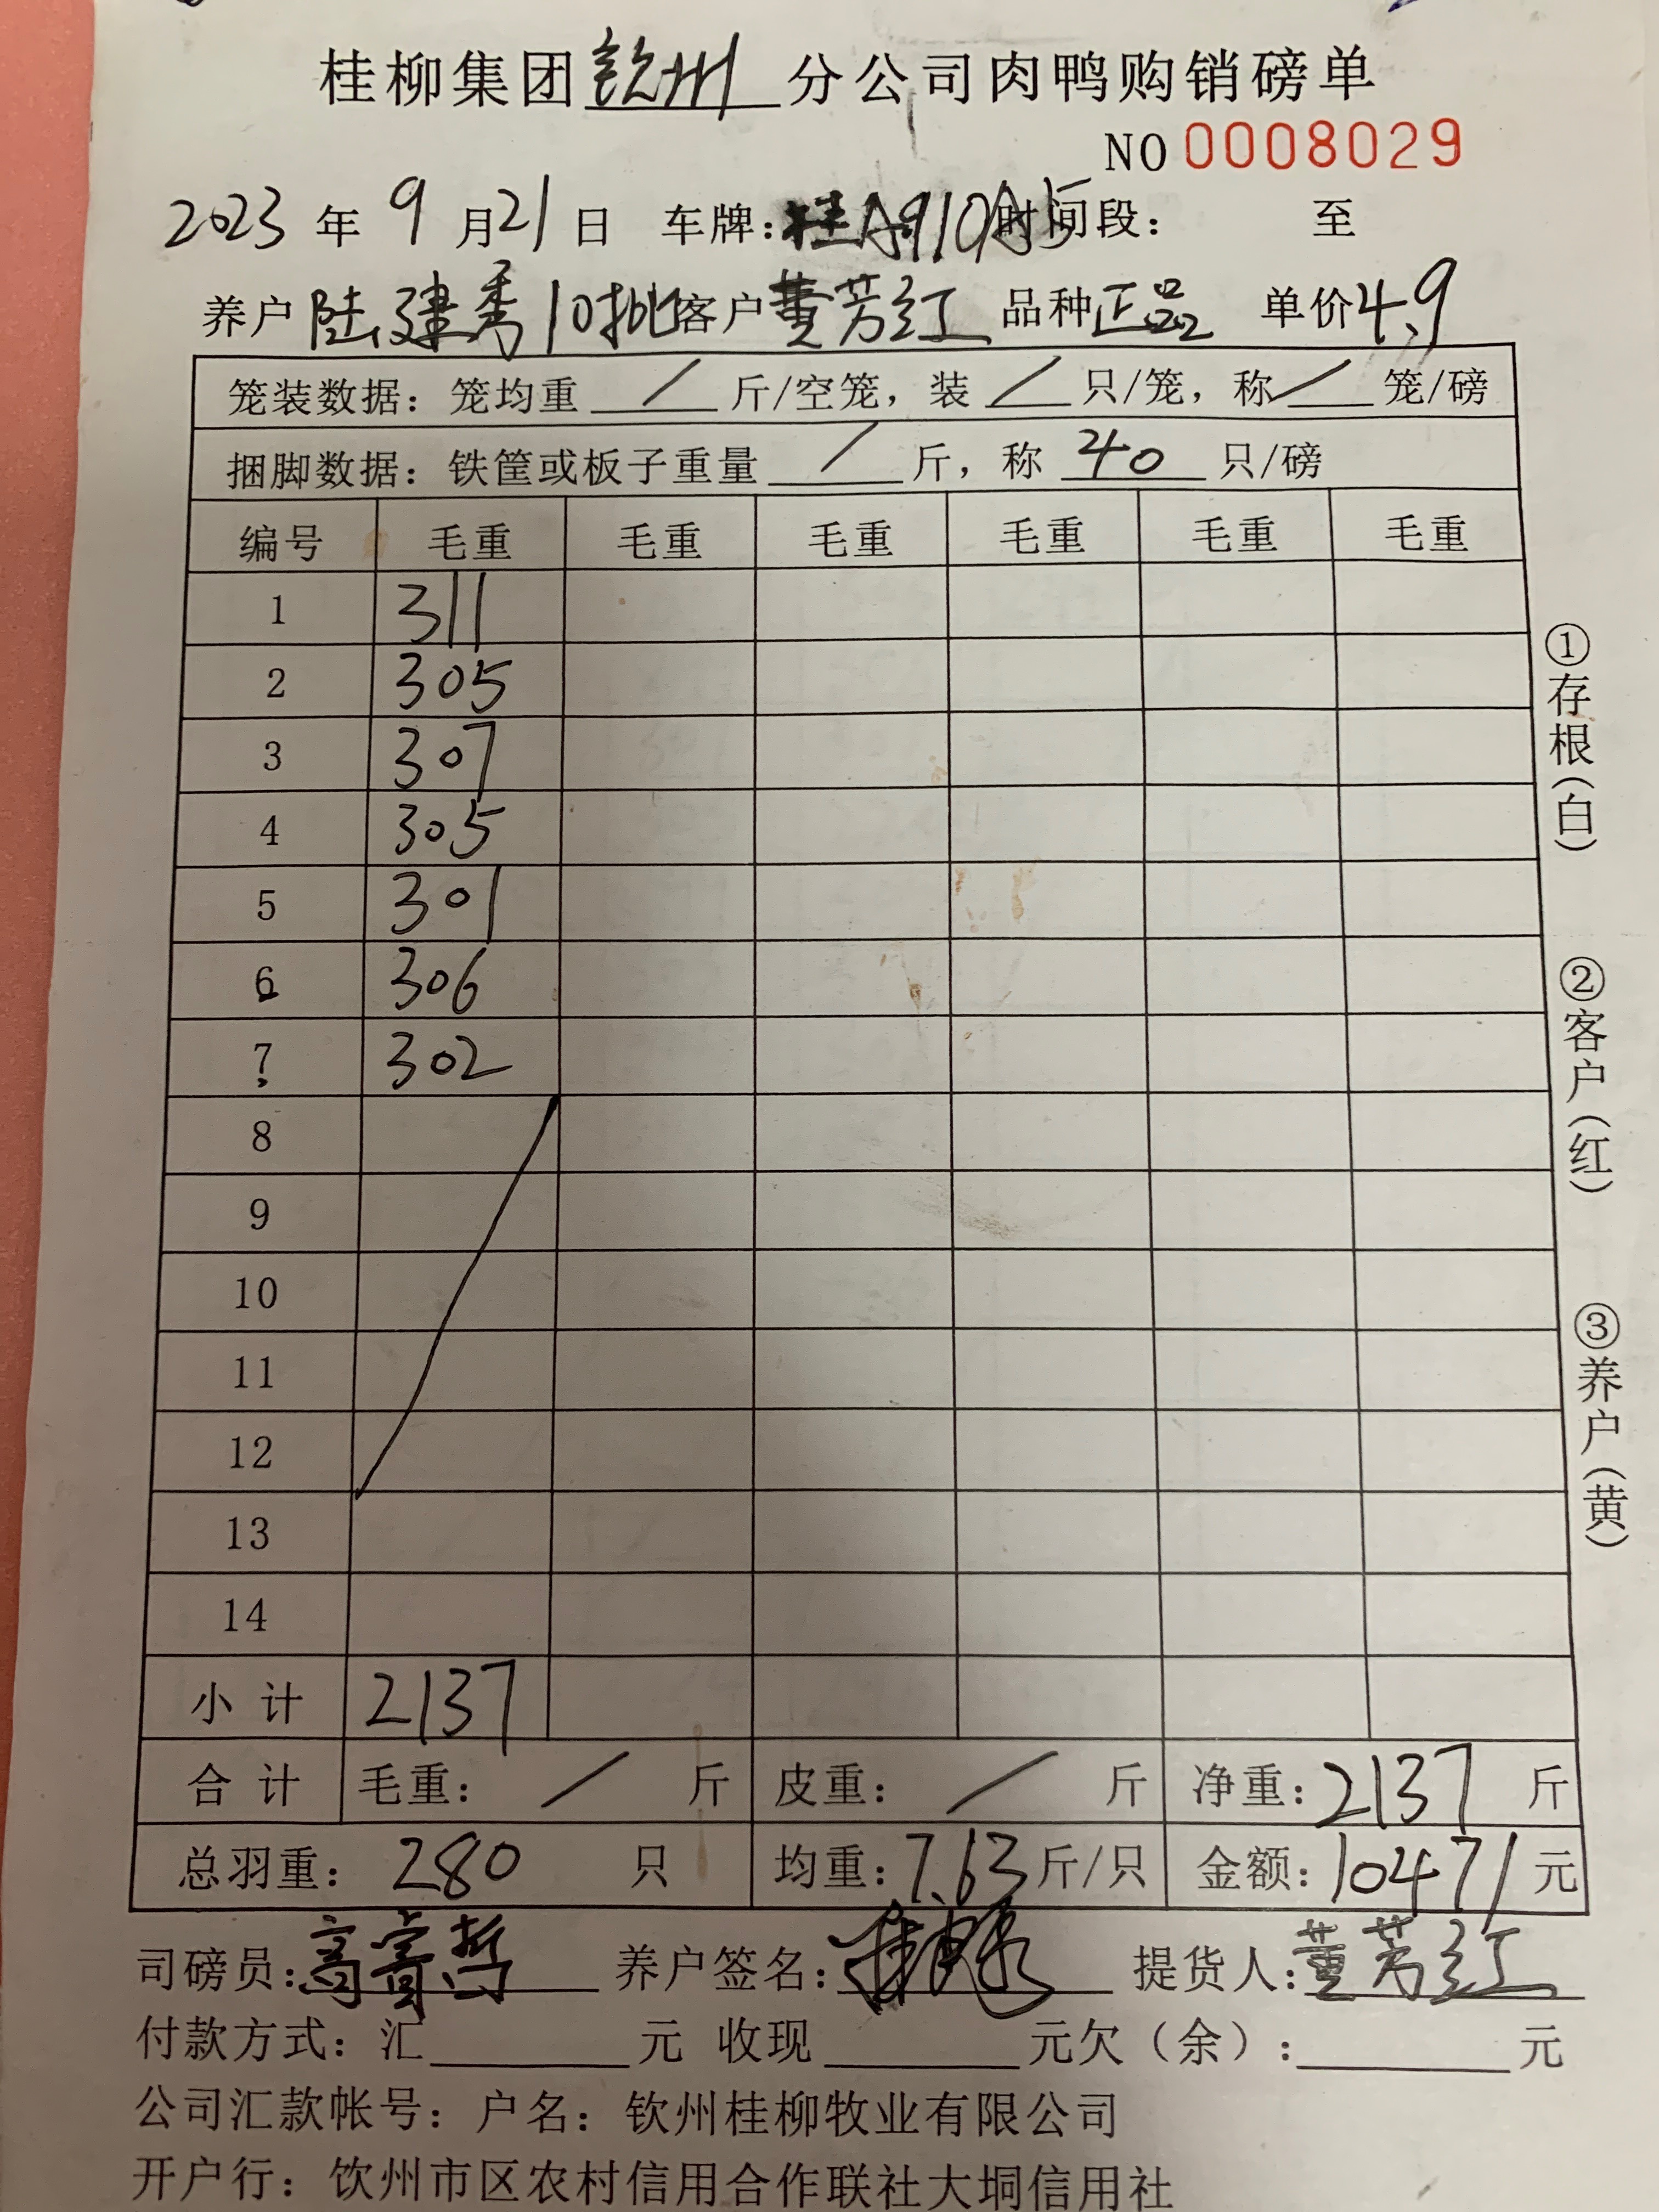 桂柳集团钦州分公司肉鸭购销磅单
NO 0008029
2023年9月21日 车牌:桂A910A5 时间段: 至
养户 陆建秀10批 客户 黄芳红 品种 正品 单价 4.9
笼装数据: 笼均重 / 斤/空笼, 装 / 只/笼, 称 / 笼/磅
捆脚数据: 铁筐或板子重量 / 斤, 称 40 只/磅
编号 毛重 毛重 毛重 毛重 毛重 毛重
1 311
2 305
3 307
4 305
5 301
6 306
7 302
8
9
10
11
12
13
14
小计 2137
合计 毛重: / 斤 皮重: / 斤 净重: 2137 斤
总羽重: 280 只 均重: 7.63 斤/只 金额: 10471 元
司磅员: 高睿哲 养户签名: 提货人: 董芳红
付款方式: 汇 元 收现 元欠(余): 元
公司汇款帐号: 户名: 钦州桂柳牧业有限公司
开户行: 钦州市区农村信用合作联社大垌信用社
①存根(白)
②客户(红)
③养户(黄)